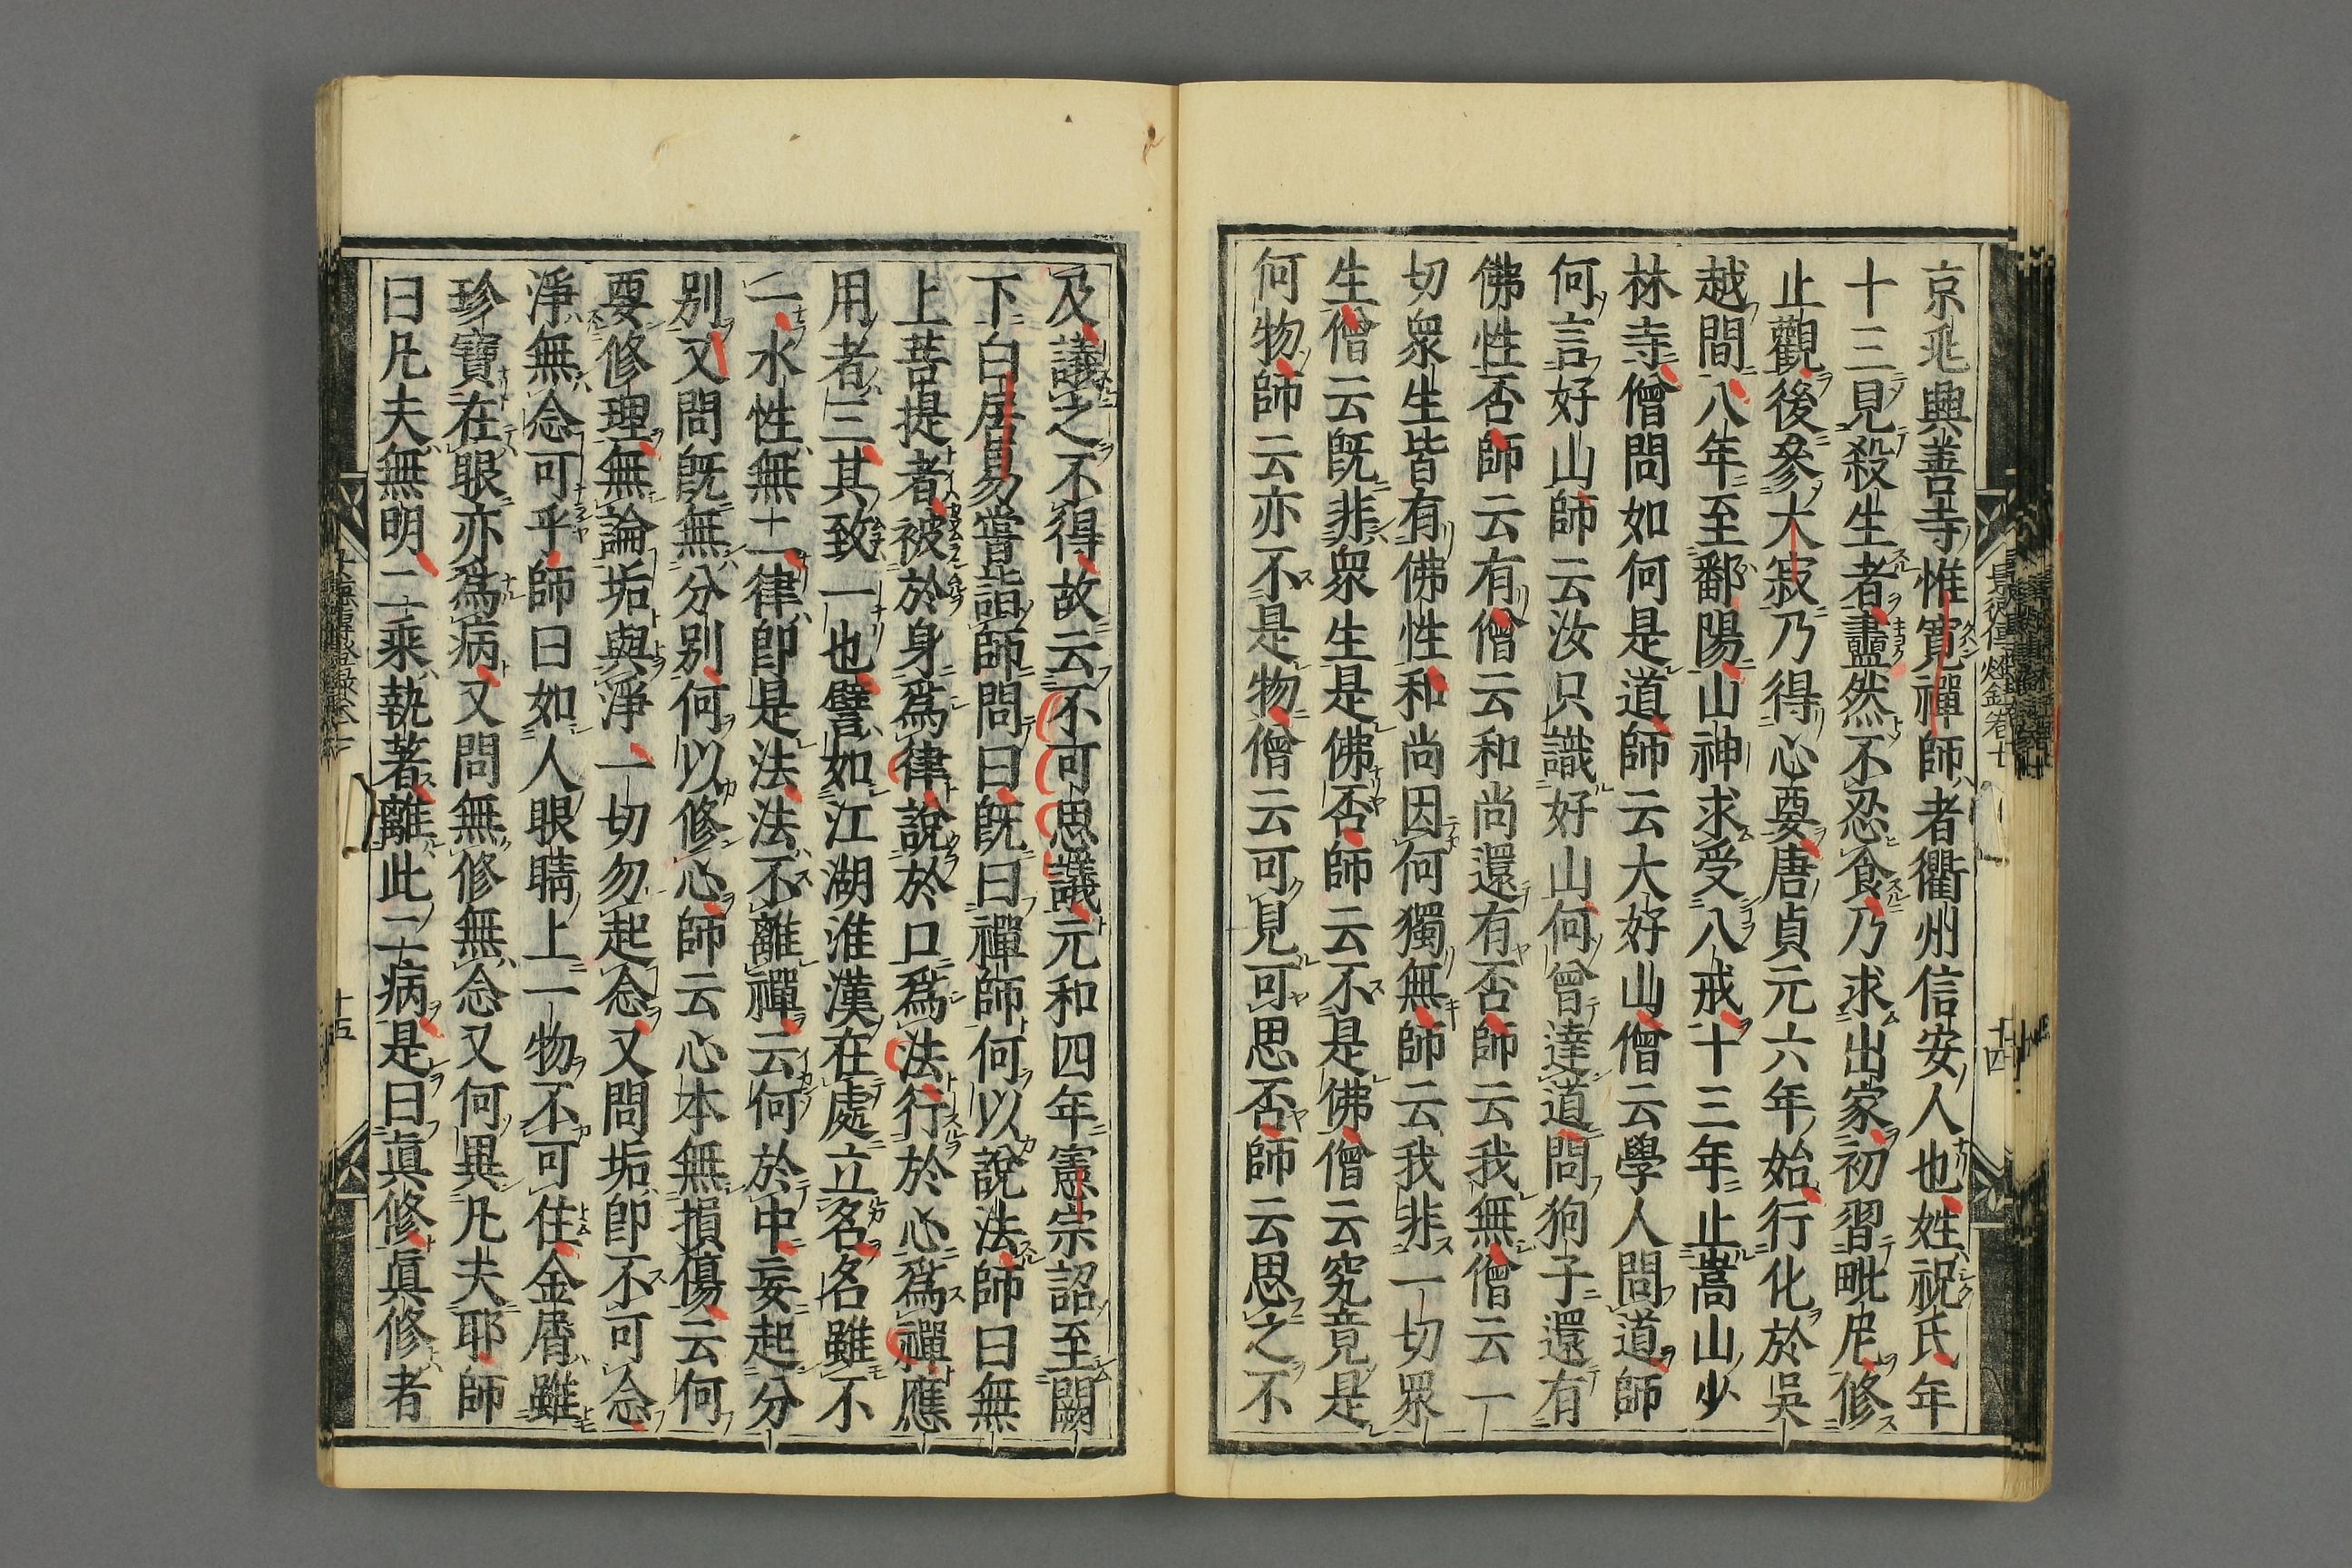 京兆興善寺惟寛禪師者衢州信安人也姓祝氏年
十三見殺生者衋然不忍食乃求出家初習毗尼修
止觀後參大寂乃得心要唐貞元六年始行化於吳
越間八年至鄱陽山神求受八戒十三年止嵩山少
林寺僧問如何是道師云大好山僧云學人問道師
何言好山師云汝只識好山何曾達道問狗子還有
佛性否師云有僧云和尚還有否師云我無僧云一
切衆生皆有佛性和尚因何獨無師云我非一切眾
生僧云既非眾生是佛否師云不是佛僧云究竟是
何物師云亦不是物僧云可見可思否師云思之不
及議之不得故云不可思議元和四年憲宗詔至闕
下白居易甞詣師問曰既曰禪師何以說法師曰無
上菩提者被於身爲律說於口爲法行於心爲禪應
用者三其致一也譬如江湖淮漢在處立名名雖不
一水性無二律即是法法不離禪云何於中妄起分
別又問既無分別何以修心師云心本無損傷云何
要修理無論垢與淨一切勿起念又問垢即不可念
淨無念可乎師曰如人眼睛上一物不可住金屑雖
珍寶在眼亦爲病又問無修無念又何異凡夫耶師
曰凡夫無明二乘執著離此二病是曰眞修眞修者
十四
十五